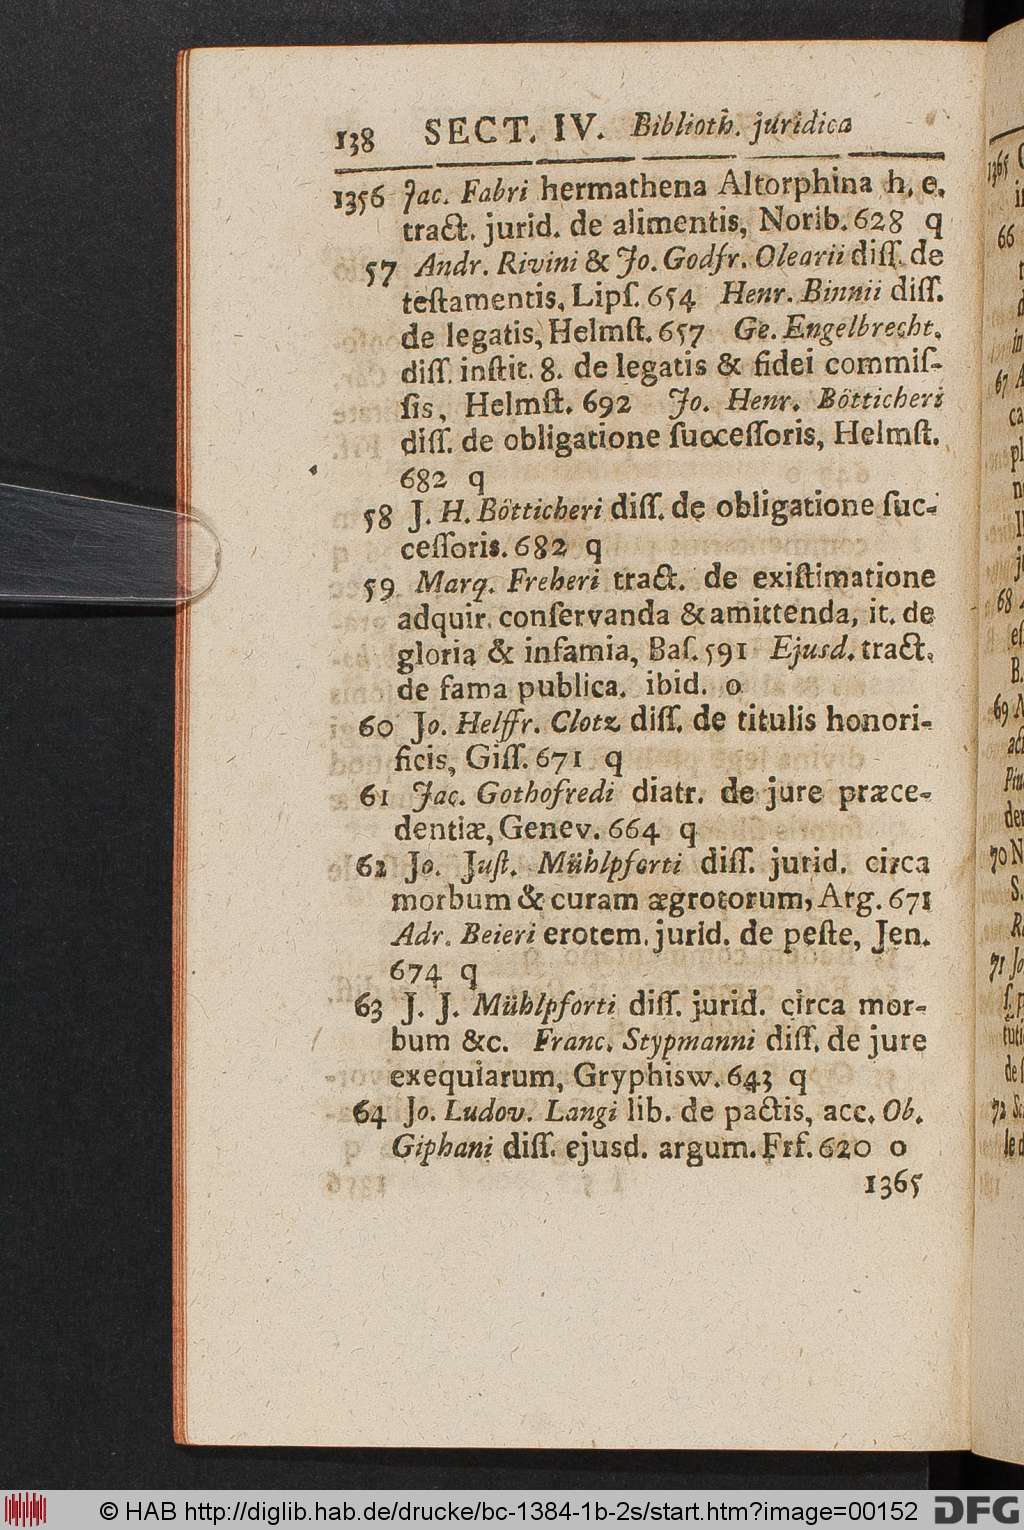 138 SECT. IV. Biblioth. juridica
1356 Jac. Fabri hermathena Altorphina h. e.
tract. jurid. de alimentis, Norib. 628 q
57 Andr. Rivini & Jo. Godfr. Olearii diſſ. de
teſtamentis, Lipſ. 654 Henr. Binnii diſſ.
de legatis, Helmſt. 657 Ge. Engelbrecht.
diſſ. inſtit. 8. de legatis & fidei commiſ-
ſis, Helmſt. 692 Jo. Henr. Bötticheri
diſſ. de obligatione ſucceſſoris, Helmſt.
682 q
58 J. H. Bötticheri diſſ. de obligatione ſuc-
ceſſoris. 682 q
59 Marq. Freheri tract. de exiſtimatione
adquir. conſervanda & amittenda, it. de
gloria & infamia, Baſ. 591 Ejusd. tract.
de fama publica. ibid. o
60 Jo. Helffr. Clotz diſſ. de titulis honori-
ficis, Giſſ. 671 q
61 Jac. Gothofredi diatr. de jure præce-
dentiæ, Genev. 664 q
62 Jo. Juſt. Mühlpforti diſſ. jurid. circa
morbum & curam ægrotorum, Arg. 671
Adr. Beieri erotem. jurid. de peſte, Jen.
674 q
63 J. J. Mühlpforti diſſ. jurid. circa mor-
bum &c. Franc. Stypmanni diſſ. de jure
exequiarum, Gryphisw. 643 q
64 Jo. Ludov. Langi lib. de pactis, acc. Ob.
Giphani diſſ. ejusd. argum. Frf. 620 o
1365
© HAB http://diglib.hab.de/drucke/bc-1384-1b-2s/start.htm?image=00152 DFG